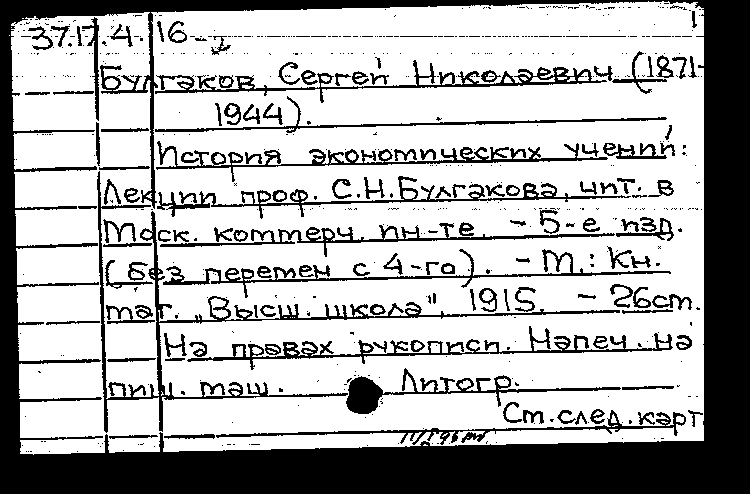 37.17.4.16-2
1
Булгаков, Сергей Николаевич (1871-
1944).
История экономических учений:
Лекции проф. С.Н.Булгакова, чит. в
Моск. коммерч. ин-те. - 5-е изд.
(без перемен с 4-го). - М.: Кн.
маг. „Высш. школа", 1915. - 26см.
На правах рукописи. Напеч. на
пиш. маш. Литогр.
См. след. карт